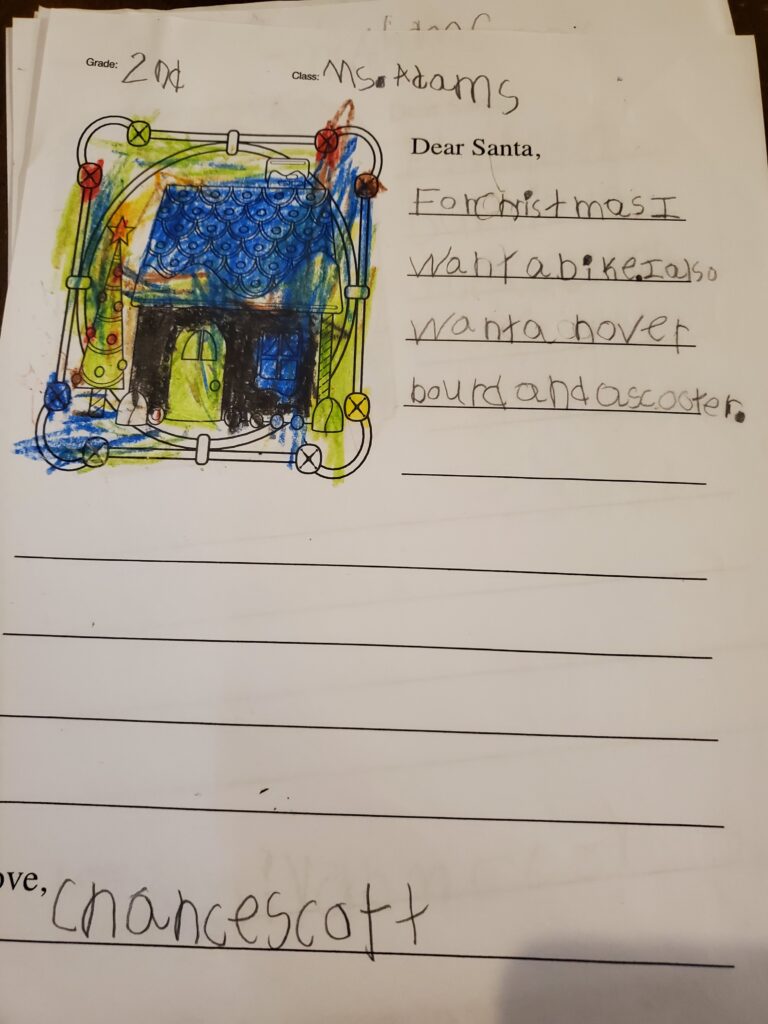 Grade: 2nd
Class: Ms. Adams
Dear Santa,
For Christmas I
want a bike. I also
want a hover
bourd and a scooter.
ove,
chance scott